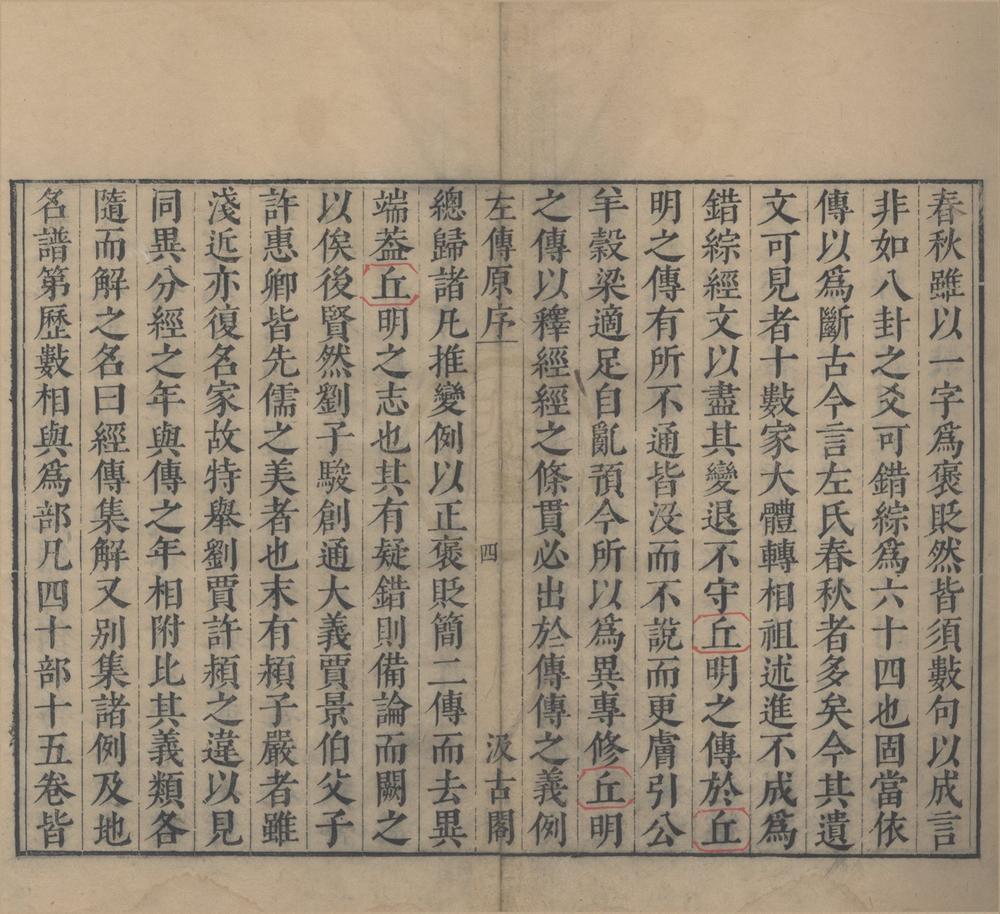 春秋雖以一字爲褒貶然皆須數句以成言
非如八卦之爻可錯綜爲六十四也固當依
傳以爲斷古今言左氏春秋者多矣今其遺
文可見者十數家大體轉相祖述進不成爲
錯綜經文以盡其變退不守丘明之傳於丘
明之傳有所不通皆沒而不說而更膚引公
羊穀梁適足自亂預今所以爲異專修丘明
之傳以釋經經之條貫必出於傳傳之義例
左傳原序 四 汲古閣
總歸諸凡推變例以正褒貶簡二傳而去異
端葢丘明之志也其有疑錯則備論而闕之
以俟後賢然劉子駿創通大義賈景伯父子
許惠卿皆先儒之美者也末有潁子嚴者雖
淺近亦復名家故特舉劉賈許潁之違以見
同異分經之年與傳之年相附比其義類各
隨而解之名曰經傳集解又別集諸例及地
名譜第歷數相與爲部凡四十部十五卷皆